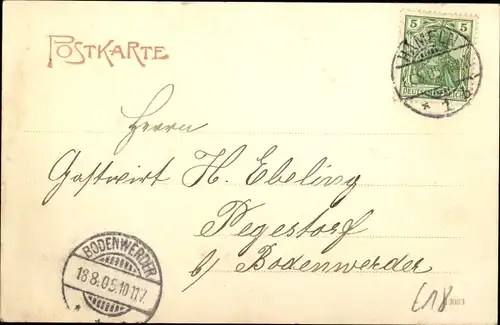 POSTKARTE
5 5
HAMELN
DEUTSCHES REICH
* 1 b
Herrn
Gastwirt H. Ebeling
Pegestorf
b/ Bodenwerder
BODENWERDER
18.8.05.10-11V.
* *